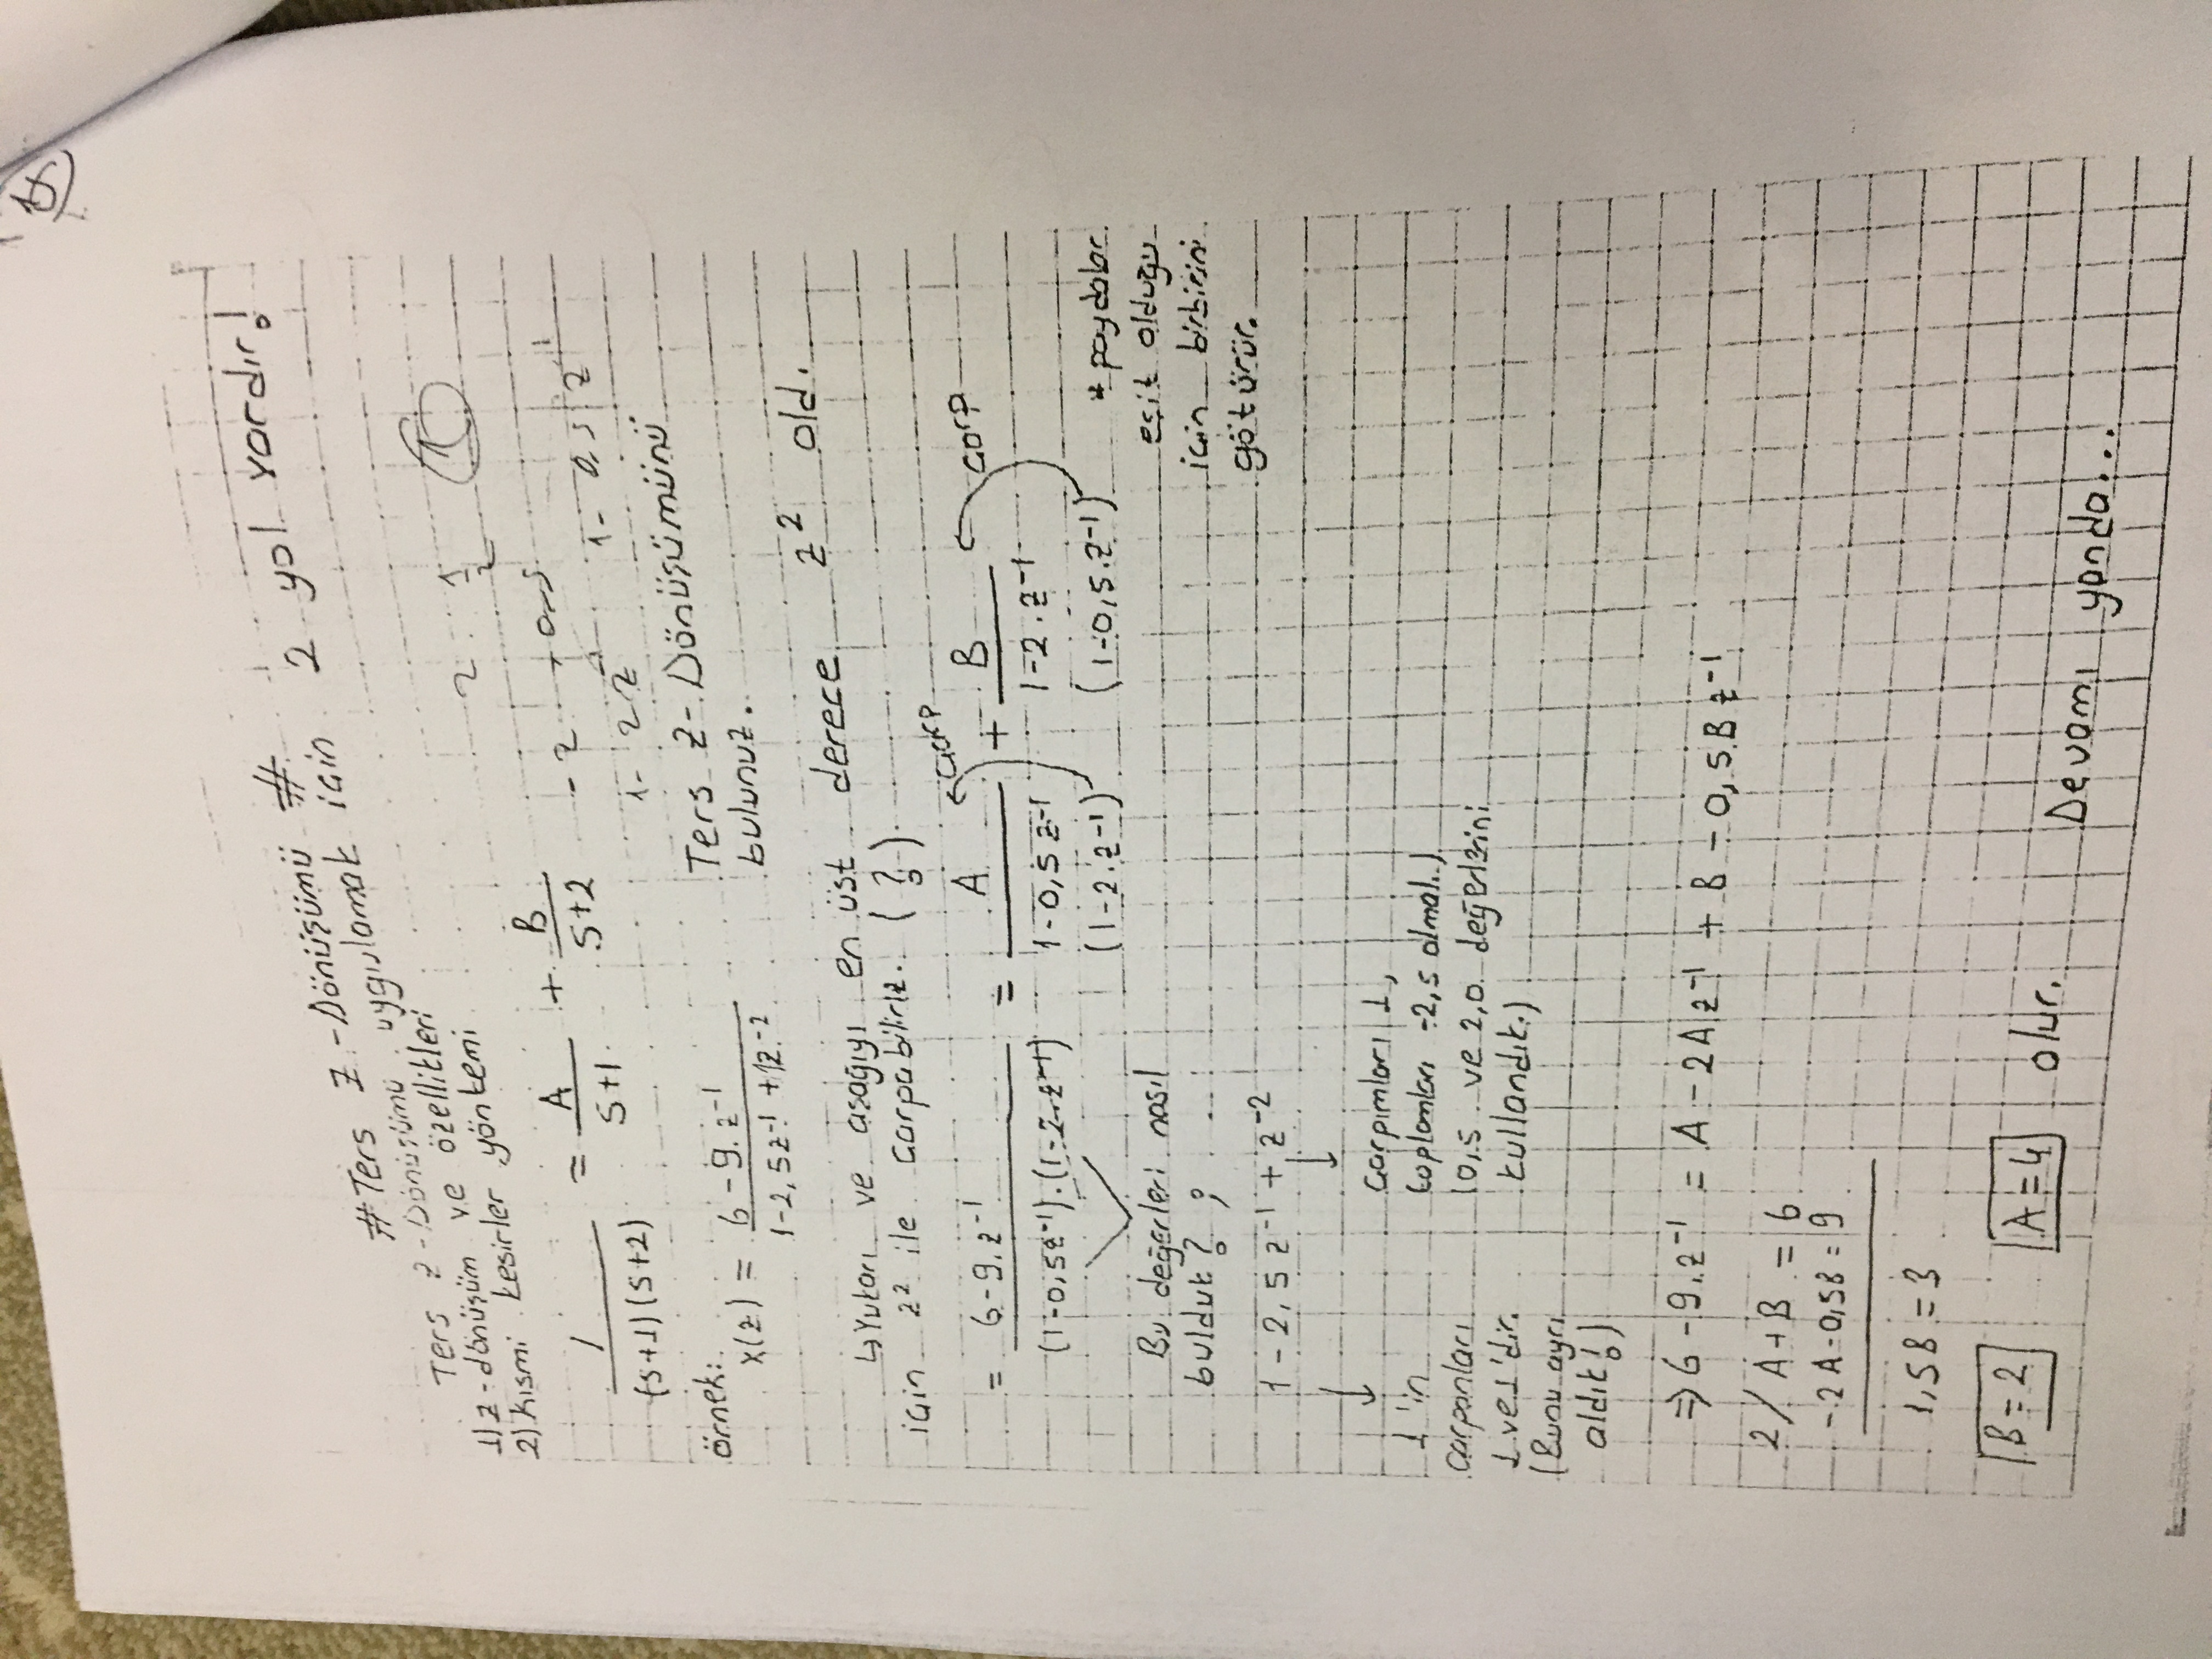 14
#Ters Z-Dönüşümü #
Ters z-Dönüşümü uygulamak için 2 yol vardır!
1) z-dönüşüm ve özellikleri
2) Kısmi kesirler yöntemi
2 . 1/2 1
1/((s+1)(s+2)) = A/(s+1) + B/(s+2)
-2 + 0,5
1- 2z⁻¹ 1- 0,5 z⁻¹
örnek:
x(z) = (6-9.z⁻¹)/(1-2,5z⁻¹+1z⁻²) Ters Z-Dönüşümünü
bulunuz.
↳Yukarı ve aşağıyı en üst derece z² old.
için z² ile çarpabiliriz. (?)
= (6-9.z⁻¹)/((1-0,5z⁻¹).(1-2.z⁻¹)) = A/(1-0,5z⁻¹) + B/(1-2.z⁻¹)
çarp çarp
(1-2.z⁻¹) (1-0,5.z⁻¹)
* paydalar
eşit olduğu
için birbirini
götürür.
Bu değerleri nasıl
bulduk? ;
1-2,5z⁻¹+z⁻²
↓ ↓
1'in
çarpanları
1 ve 1'dir.
(Bunu ayrı
aldık!)
çarpımları 1,
toplamları -2,5 olmal.)
(0,5 ve 2,0 değerlerini
kullandık.)
⇒ 6-9.z⁻¹ = A-2Az⁻¹ + B-0,5Bz⁻¹
2/ A+B = 6
-2A-0,5B = 9
1,5B = 3
B=2 A=4 olur.
Devamı yanda...